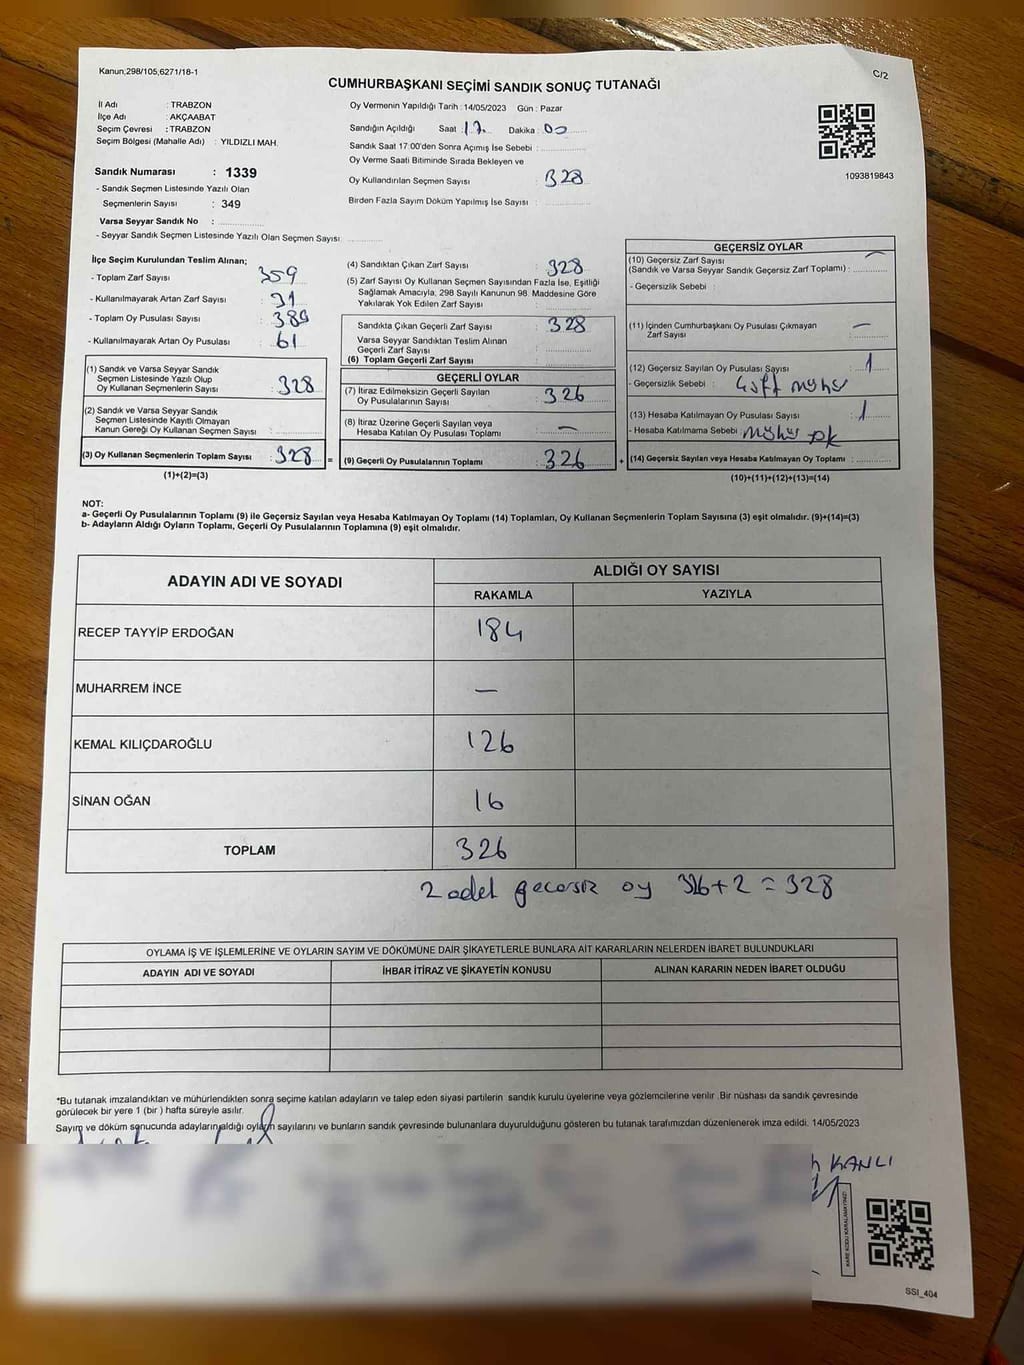 Kanun;298/105,6271/18-1
C/2
CUMHURBAŞKANI SEÇİMİ SANDIK SONUÇ TUTANAĞI
İl Adı : TRABZON
İlçe Adı : AKÇAABAT
Seçim Çevresi : TRABZON
Seçim Bölgesi (Mahalle Adı) : YILDIZLI MAH.
Sandık Numarası : 1339
- Sandık Seçmen Listesinde Yazılı Olan
Seçmenlerin Sayısı : 349
Varsa Seyyar Sandık No :
- Seyyar Sandık Seçmen Listesinde Yazılı Olan Seçmen Sayısı
Oy Vermenin Yapıldığı Tarih : 14/05/2023 Gün : Pazar
Sandığın Açıldığı Saat : 17. Dakika : 00
Sandık Saat 17:00'den Sonra Açımış İse Sebebi :
Oy Verme Saati Bitiminde Sırada Bekleyen ve
Oy Kullandırılan Seçmen Sayısı : 328
Birden Fazla Sayım Döküm Yapılmış İse Sayısı :
1093819843
İlçe Seçim Kurulundan Teslim Alınan;
- Toplam Zarf Sayısı : 359
- Kullanılmayarak Artan Zarf Sayısı : 31
- Toplam Oy Pusulası Sayısı : 389
- Kullanılmayarak Artan Oy Pusulası : 61
(1) Sandık ve Varsa Seyyar Sandık
Seçmen Listesinde Yazılı Olup
Oy Kullanan Seçmenlerin Sayısı : 328
(2) Sandık ve Varsa Seyyar Sandık
Seçmen Listesinde Kayıtlı Olmayan
Kanun Gereği Oy Kullanan Seçmen Sayısı :
(3) Oy Kullanan Seçmenlerin Toplam Sayısı : 328 =
(1)+(2)=(3)
(4) Sandıktan Çıkan Zarf Sayısı : 328
(5) Zarf Sayısı Oy Kullanan Seçmen Sayısından Fazla İse, Eşitliği
Sağlamak Amacıyla, 298 Sayılı Kanunun 98. Maddesine Göre
Yakılarak Yok Edilen Zarf Sayısı :
Sandıkta Çıkan Geçerli Zarf Sayısı : 328
Varsa Seyyar Sandıktan Teslim Alınan
Geçerli Zarf Sayısı :
(6) Toplam Geçerli Zarf Sayısı :
GEÇERLİ OYLAR
(7) İtiraz Edilmeksizin Geçerli Sayılan
Oy Pusulalarının Sayısı : 326
(8) İtiraz Üzerine Geçerli Sayılan veya
Hesaba Katılan Oy Pusulası Toplamı : —
(9) Geçerli Oy Pusulalarının Toplamı : 326 +
GEÇERSİZ OYLAR
(10) Geçersiz Zarf Sayısı —
(Sandık ve Varsa Seyyar Sandık Geçersiz Zarf Toplamı) :
- Geçersizlik Sebebi :
(11) İçinden Cumhurbaşkanı Oy Pusulası Çıkmayan —
Zarf Sayısı
(12) Geçersiz Sayılan Oy Pusulası Sayısı : 1
- Geçersizlik Sebebi : mühür
(13) Hesaba Katılmayan Oy Pusulası Sayısı : 1
- Hesaba Katılmama Sebebi : mühür
(14) Geçersiz Sayılan veya Hesaba Katılmayan Oy Toplamı :
(10)+(11)+(12)+(13)=(14)
NOT:
a- Geçerli Oy Pusulalarının Toplamı (9) ile Geçersiz Sayılan veya Hesaba Katılmayan Oy Toplamı (14) Toplamları, Oy Kullanan Seçmenlerin Toplam Sayısına (3) eşit olmalıdır. (9)+(14)=(3)
b- Adayların Aldığı Oyların Toplamı, Geçerli Oy Pusulalarının Toplamına (9) eşit olmalıdır.
ADAYIN ADI VE SOYADI
ALDIĞI OY SAYISI
RAKAMLA YAZIYLA
RECEP TAYYİP ERDOĞAN 184
MUHARREM İNCE —
KEMAL KILIÇDAROĞLU 126
SİNAN OĞAN 16
TOPLAM 326
2 adet geçersiz oy 326+2=328
OYLAMA İŞ VE İŞLEMLERİNE VE OYLARIN SAYIM VE DÖKÜMÜNE DAİR ŞİKAYETLERLE BUNLARA AİT KARARLARIN NELERDEN İBARET BULUNDUKLARI
ADAYIN ADI VE SOYADI İHBAR İTİRAZ VE ŞİKAYETİN KONUSU ALINAN KARARIN NEDEN İBARET OLDUĞU
*Bu tutanak imzalandıktan ve mühürlendikten sonra seçime katılan adayların ve talep eden siyasi partilerin sandık kurulu üyelerine veya gözlemcilerine verilir .Bir nüshası da sandık çevresinde
görülecek bir yere 1 (bir ) hafta süreyle asılır.
Sayım ve döküm sonucunda adayların aldığı oyların sayılarını ve bunların sandık çevresinde bulunanlara duyurulduğunu gösteren bu tutanak tarafımızdan düzenlenerek imza edildi. 14/05/2023
KANLI
KARE KODU KARALAMAYINIZ!
SSI_404